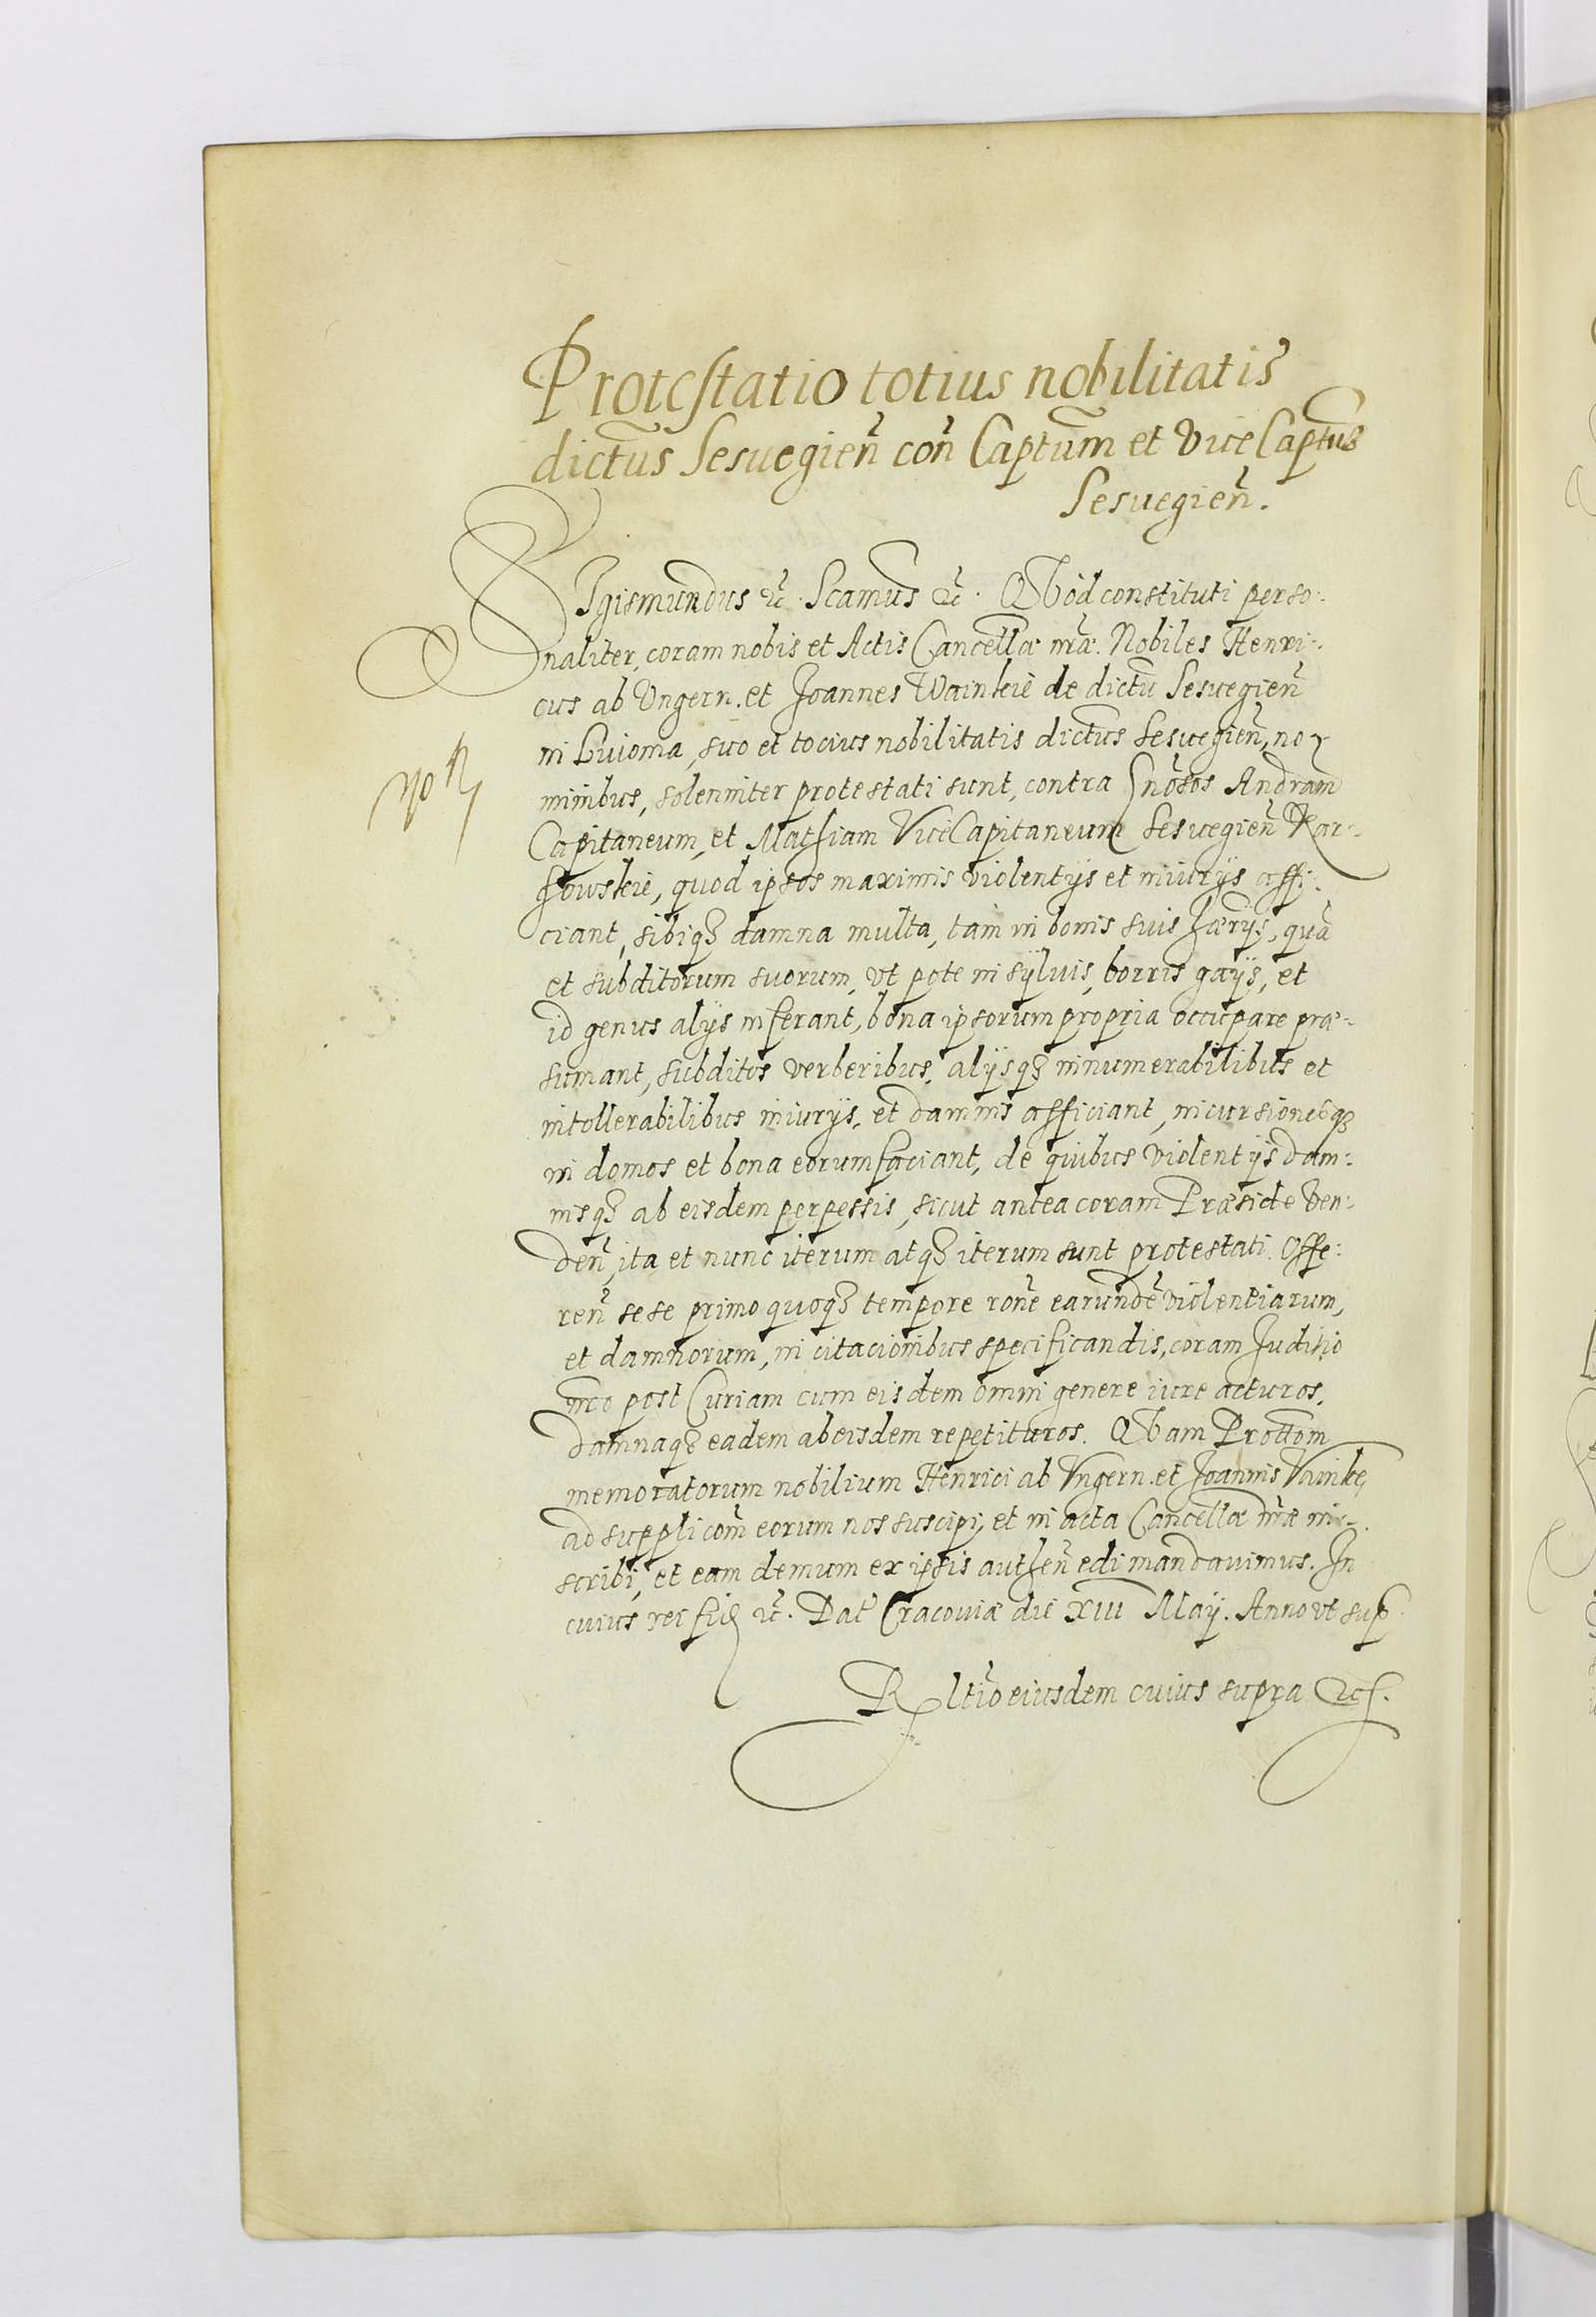 Protestatio totius nobilitatis
dictus Sesuegień coń Captum et Vice Captus
Sesuegień.
Sigismundus etc. Scamus etc. Qđ constituti perso-
naliter, coram nobis et Actis Cancellæ nræ. Nobiles Henri-
cus ab Vngern. et Joannes Wainkie de dictu Sesuegień
in Liuionia, suo et tocius nobilitatis dictus Sesuegień, no-
minibus, solenniter protestati sunt, contra Gnosos Andream
Capitaneum, et Mathiam ViceCapitaneum Sesuegień Kar-
howskie, quod ipsos maximis violentijs et iniurijs affi-
ciant, sibiq damna multa, tam in bonis suis hærijs, quā
et subditorum suorum, vt pote in syluis, borris gaijs, et
id genus alijs inferant, bona ipsorum propria occupare præ-
sumant, subditos verberibus, alijsq innumerabilibus et
intollerabilibus iniurijs, et damnis afficiant, incursionesq
in domos et bona eorum faciant, de quibus violentijs dam-
nisq ab eisdem perpessis, sicut antea coram Præside Ven-
deń, ita et nunc iterum atq iterum sunt protestati. Offe-
reń sese primo quoq tempore rone earunde violentiarum,
et damnorum, in citacionibus specificandis, coram Juditio
nro post Curiam cum eisdem omni genere iure acturos,
damnaq eadem ab eisdem repetituros. Qam Prottom
memoratorum nobilium Henrici ab Vngern. et Joannis Vainke
ad supplicom eorum nos suscipi, et in acta Cancellæ nræ in-
scribi, et eam demum ex ipsis autheń edi mandauimus. In
cuius rei fid etc. Dat Cracouiæ die XIII Maij. Anno vt sup.
Rltio eiusdem cuius supra etc.